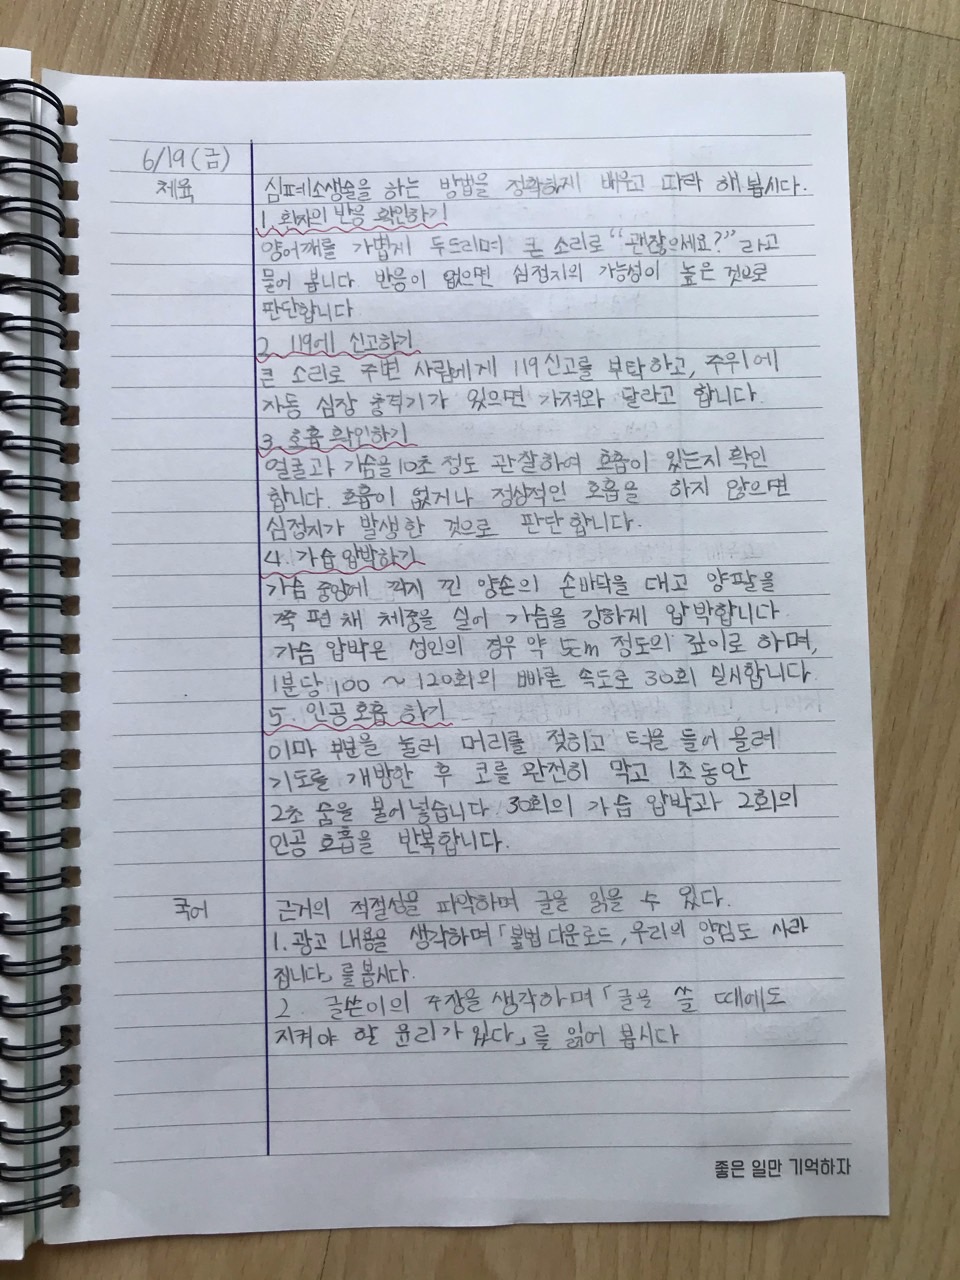 6/19(금)
체육 심폐소생술을 하는 방법을 정확하게 배우고 따라 해 봅시다.
1. 환자의 반응 확인하기
양어깨를 가볍게 두드리며 큰 소리로 "괜찮으세요?" 라고
물어 봅니다 반응이 없으면 심정지의 가능성이 높은 것으로
판단합니다
2. 119에 신고하기
큰 소리로 주변 사람에게 119신고를 부탁하고, 주위에
자동 심장 충격기가 있으면 가져와 달라고 합니다.
3. 호흡 확인하기
얼굴과 가슴을 10초 정도 관찰하여 호흡이 있는지 확인
합니다. 호흡이 없거나 정상적인 호흡을 하지 않으면
심정지가 발생한 것으로 판단합니다.
4. 가슴 압박하기
가슴 중앙에 깍지 낀 양손의 손바닥을 대고 양팔을
쭉 편 채 체중을 실어 가슴을 강하게 압박합니다
가슴 압박은 성인의 경우 약 5cm 정도의 깊이로 하며,
1분당 100 ~ 120회의 빠른 속도로 30회 실시합니다.
5. 인공호흡 하기
이마 부분을 눌러 머리를 젖히고 턱을 들어 올려
기도를 개방한 후 코를 완전히 막고 1초 동안
2초 숨을 불어 넣습니다. 30회의 가슴 압박과 2회의
인공 호흡을 반복합니다.
국어 근거의 적절성을 파악하며 글을 읽을 수 있다.
1. 광고 내용을 생각하며 「불법 다운로드, 우리의 양심도 사라
집니다」를 봅시다.
2. 글쓴이의 주장을 생각하며 「글을 쓸 때에도
지켜야 할 윤리가 있다」를 읽어 봅시다
좋은 일만 기억하자